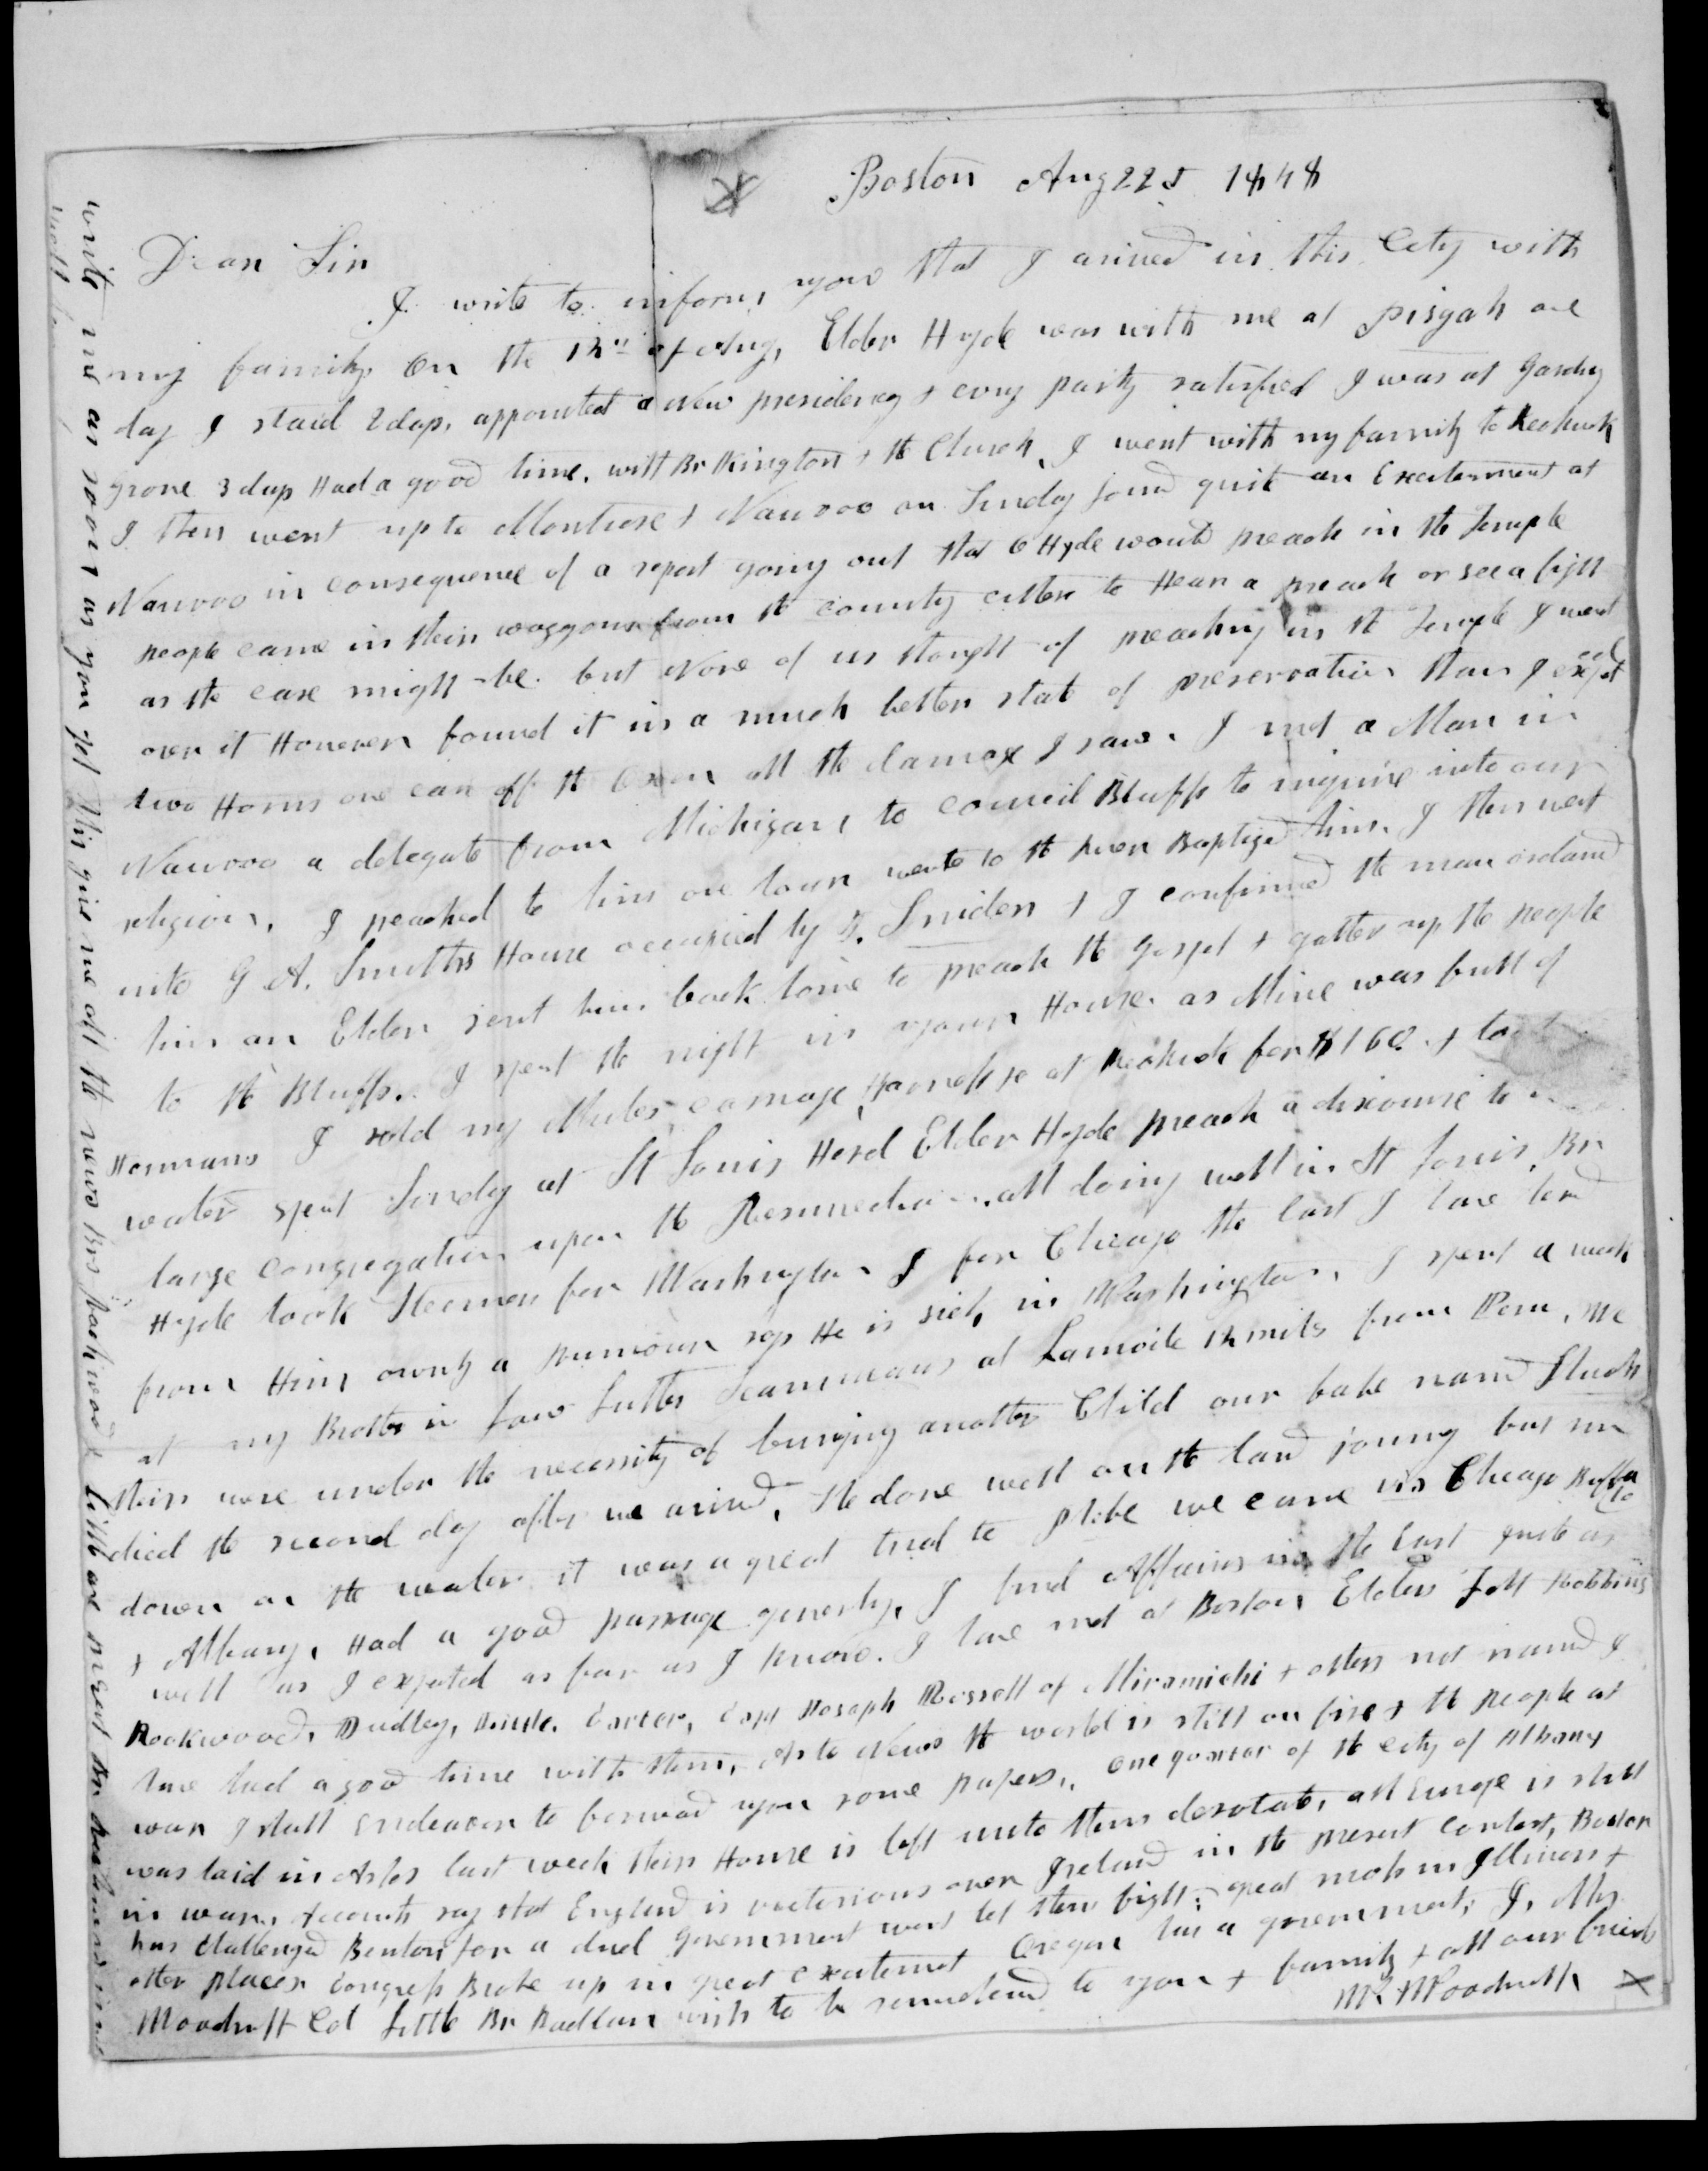 Boston Aug 22d 1848
Dear Sir
I write to inform you that I arived in this City with
my family on the 12th of Aug, Elder Hyde was with me at pisgah one
day I staid 2 days, appointed a New presidency & evry party satisfied I was at Garding
grove 3 days Had a good time. with Br Kington & the Church, I went with my family to Keokuk
I then went up to Montrose & Nauvoo on Sunday found quite an Excitement at
Nauvoo in consequence of a report going out that O Hyde would preach in the Temple
people came in their waggons from the county either to Hear a preach or see a fight
as the case might be. but None of us thought of preaching in the Temple I went
over it However found it in a much better state of preservation than I expected
two Horns one ear off the Oxen all the damage I saw. I met a Man in
Nauvoo a delegate from Michigan, to council Bluffs to inquire into our
religion. I preached to him one hour went to the River Baptized him. I then went
into G A. Smiths House occupied by Sniders & I confirmed the man ordaind
him an Elder sent him back home to preach the gospel & gather up the people
to the Bluffs. I spent the night in your House. as Mine was full of
Hormans I sold my Mules carriage, Harness &c at Keokuk for $160. & took
water spent Sunday at St Louis Herd Elder Hyde preach a discourse to a
large congregation upon the Resurrection. all doing well in St Louis, Br
Hyde took Steemer for Washington I for Chicago the last I have herd
from Him ownly a rumour says He is sick, in Washington, I spent a week
at my Brother in law Luther Scammans at Lamoile 12 miles from Peru, We
their were under the necessity of burying another Child our babe namd Shuah
died the second day after we arived, She done well on the land journy but run
down on the water it was a great trial to Phebe we came via Chicago Buffalo
& Albany, Had a good passage generly, I find Affairs in the East quite as
well as I expected as far as I know. I have met at Boston Elders Joll Robbins
Rookwood, Dudley, Carter, Capt Joseph Russell of Miramichi & others not named I
have had a good time with them, As to News the world is still on fire & the people at
war I shall endeavor to forward you some papers. one quarter of the city of Albany
was laid in Ashes last week their House is left unto them desolate, all Europe is still
in war. Accounts say that England is victorious over Ireland in the present contest, Butler
has challenged Benton for a duel Government wont let them fight. great mob in Illinois &
other places Congress Broke up in great excitement Oregon has a government, I, Mrs
Woodruff Col Little Br Badlam wish to be remembered to you & family & all our friends
W. Woodruff
write me as soon as you get this give me all the news Brs Rockwood & Little are present Br